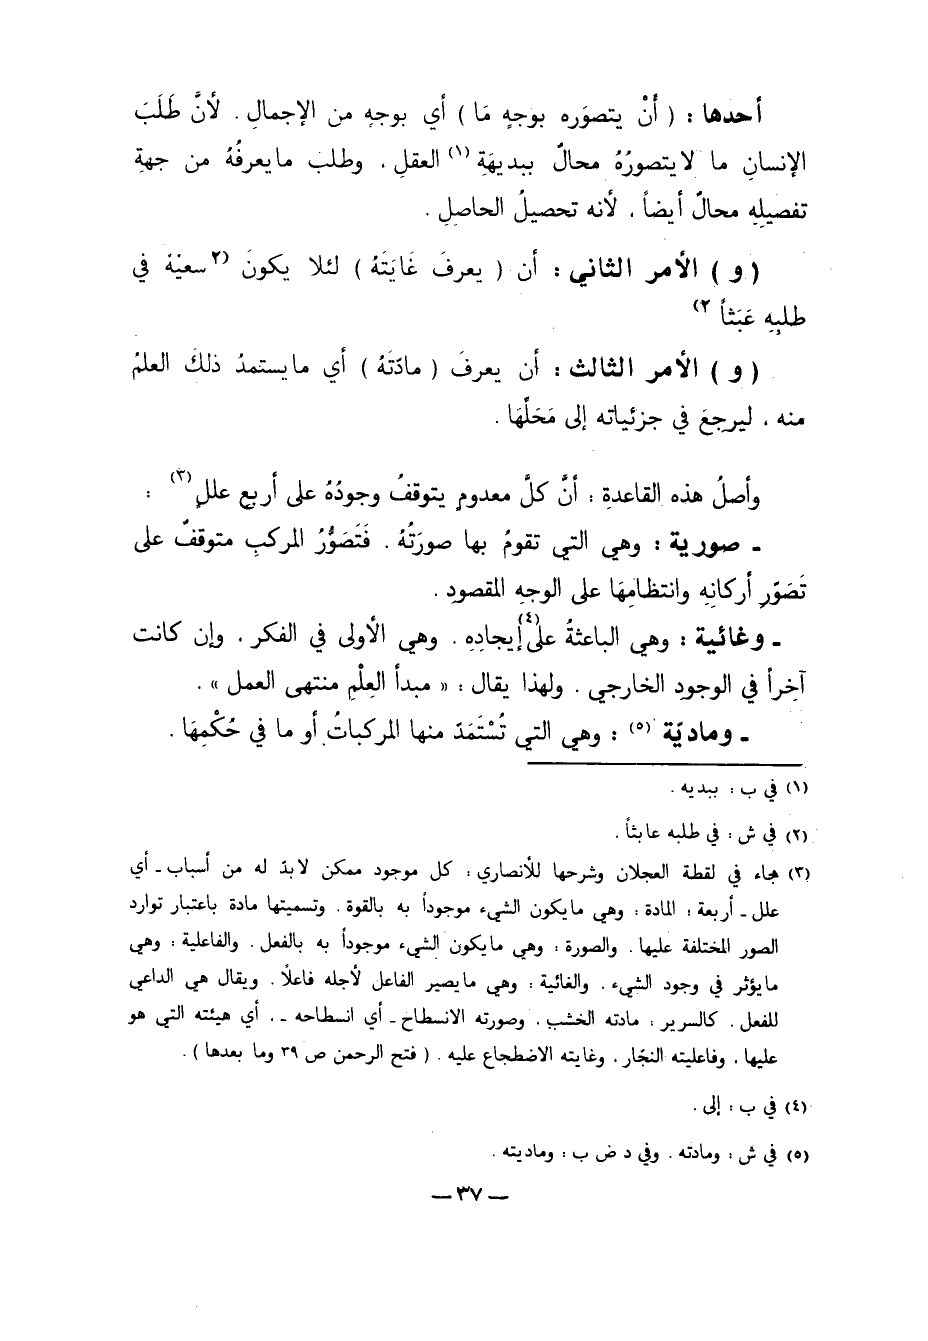 أحدها : ( أَنْ يتصوّره بوجهٍ مَا ) أي بوجهٍ من الإجمالِ . لأنَّ طَلَبَ
الإنسانِ ما لا يتصورُهُ محالٌ ببديهَةِ (١) العقلِ ، وطلب ما يعرفُهُ من جهةِ
تفصيلِهِ محالٌ أيضاً ، لأنه تحصيلُ الحاصلِ .
( و ) الأمر الثاني : أن ( يعرفَ غَايَتَهُ ) لئلا يكونَ (٢ سعيُهُ في
طلبِهِ عَبَثاً ٢)
( و ) الأمر الثالث : أن يعرفَ ( مادّتَهُ ) أي ما يستمدُ ذلكَ العلمُ
منه ، ليرجعَ في جزئياته إلى مَحَلِّهَا .
وأصلُ هذه القاعدةِ : أنَّ كلَّ معدوم يتوقفُ وجودُهُ على أربع عللٍ (٣) :
ـ صورية : وهي التي تقومُ بها صورَتُهُ . فَتَصَوُّرُ المركبِ متوقفٌ على
تَصَوّرِ أركانِهِ وانتظامِهَا على الوجهِ المقصودِ .
ـ وغائية : وهي الباعثةُ على (٤) إيجادِهِ . وهي الأولى في الفكر ، وإن كانت
آخِراً في الوجودِ الخارجي . ولهذا يقال : « مبدأ العِلْمِ منتهى العمل » .
ـ وماديّة (٥) : وهي التي تُسْتَمَدّ منها المركباتُ أو ما في حُكْمِهَا .
(١) في ب : ببديه .
(٢) في ش : في طلبه عابثاً .
(٣) جاء في لقطة العجلان وشرحها للأنصاري : كل موجود ممكن لا بدّ له من أسباب ـ أي
علل ـ أربعة : المادة : وهي ما يكون الشيء موجوداً به بالقوة . وتسميتها مادة باعتبار توارد
الصور المختلفة عليها . والصورة : وهي ما يكون الشيء موجوداً به بالفعل . والفاعلية : وهي
ما يؤثر في وجود الشيء . والغائية : وهي ما يصير الفاعل لأجله فاعلاً . ويقال هي الداعي
للفعل . كالسرير : مادته الخشب ، وصورته الانسطاح ـ أي انسطاحه ـ ، أي هيئته التي هو
عليها ، وفاعليته النجّار ، وغايته الاضطجاع عليه . ( فتح الرحمن ص ٣٩ وما بعدها ) .
(٤) في ب : إلى .
(٥) في ش : ومادته . وفي د ض ب : وماديته .
— ٣٧ —